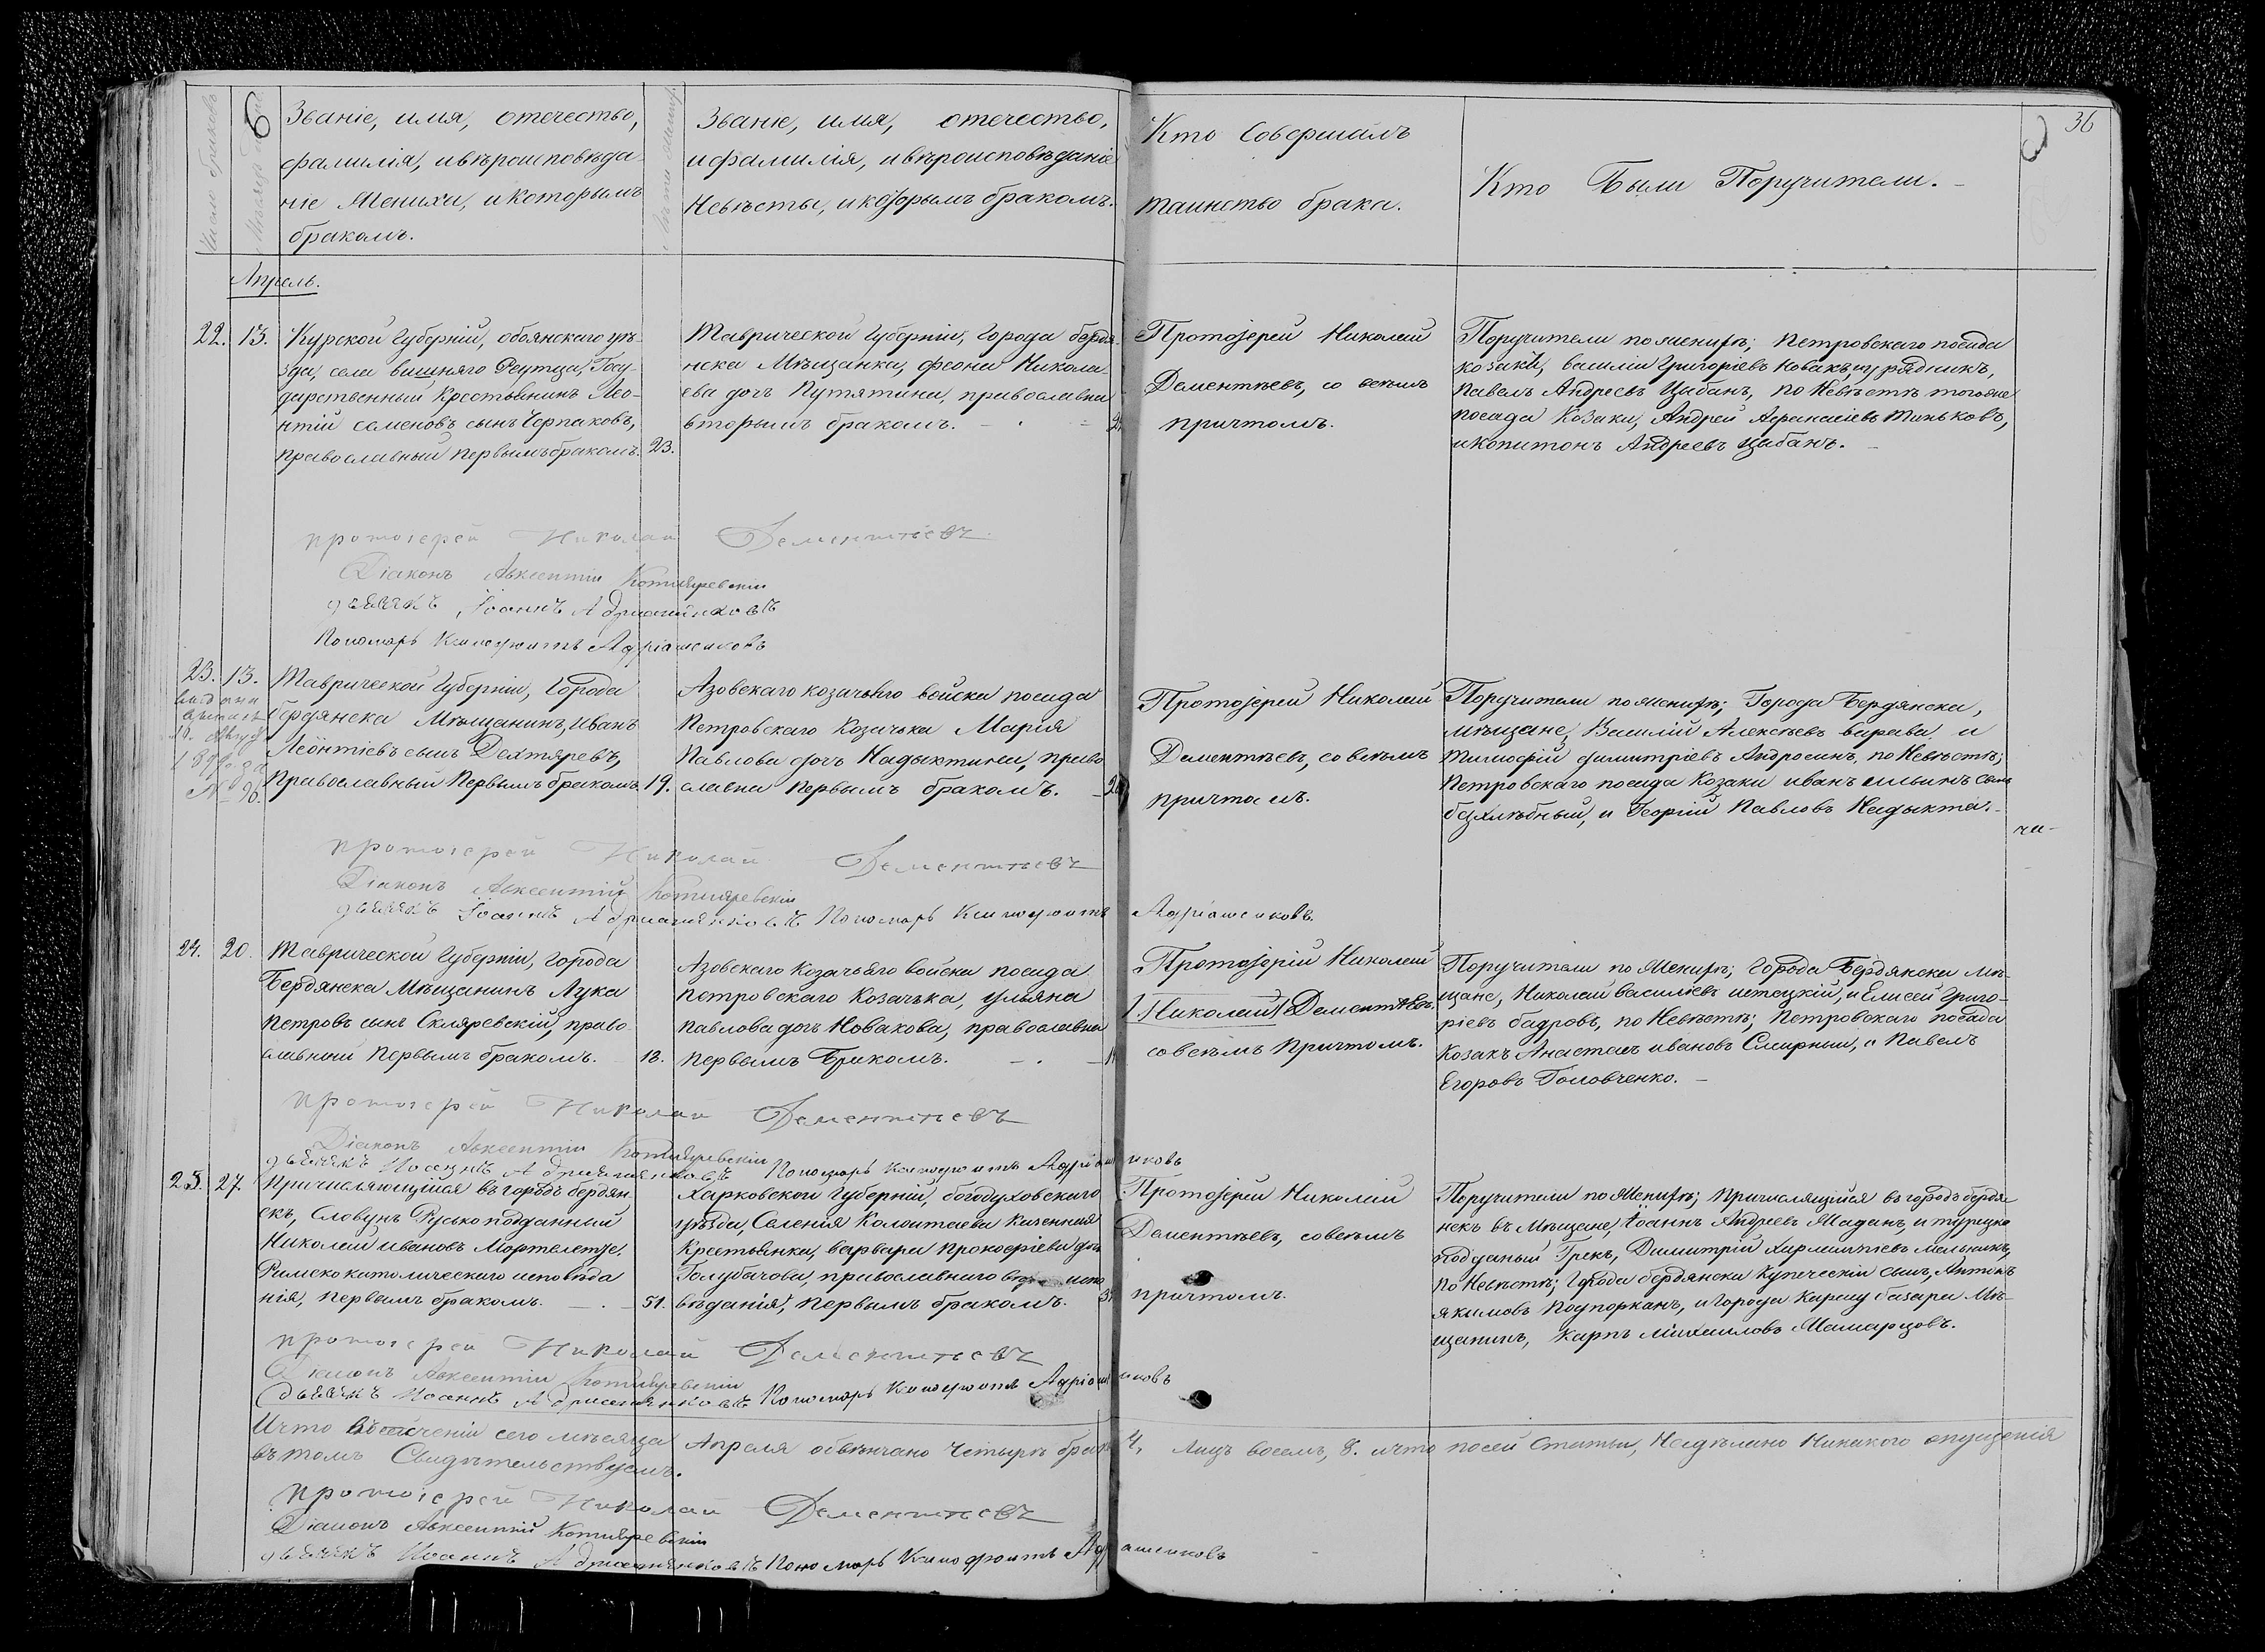 36
Званіе, имя, отечество,
фамилія, и вѣроисповѣда
ніе Жениха, и которымъ
бракомъ.
Званіе, имя, отечество,
и фамилія, и вѣроисповѣданіе
Невѣсты, и которымъ бракомъ.
Кто Совершалъ
таинство брака.
Кто Были Поручители.
Апрель.
22. 13.
Курской Губерніи, обоянскаго уѣ-
зда, села вишняго Реутца, Госу-
дарственный Крестьянинъ Лео-
нтій семеновъ сынъ Черпаковъ,
православный первымъ бракомъ. 23.
Таврической Губерніи, Города бердя
нска Мѣщанка, феона Никола
ева дочь Путятина, православна
вторымъ бракомъ.
Протоіерей Николай
Дементьевъ, со всемъ
причтомъ.
Поручители по женихѣ; Петровскаго посада
козаки, василій Григоріевъ Новакъ, урядникъ,
Павелъ Андреевъ Цыбань, по Невѣстѣ тогоже
посада Козаки, Андрей Афанасіевъ Тиньковъ,
и Копитонъ Андреевъ Цыбань.
протоіерей Николай Дементьевъ
Діаконъ Авксентій Котляревскій
дьячекъ Іоаннъ Адріашенковъ
Пономарь Ксенофонтъ Адріашенковъ
23. 13.
выдана
Таврической Губерніи, Города
бердянска Мѣщанинъ, Иванъ
Леонтіевъ сынъ Дехтяревъ,
Православный Первымъ бракомъ. 19.
Азовскаго козачьяго войска посада
Петровскаго Козачька Марія
Павлова дочь Надыктина, право
славна первымъ бракомъ.
Протоіерей Николай
Дементьевъ, со всемъ
причтомъ.
Поручители по женихѣ; Города Бердянска,
мѣщане, Василій Алексѣевъ варава и
Тимофій димитріевъ Андросинъ, по Невѣстѣ;
Петровскаго посада Козаки иванъ ильинъ сынъ
безхлѣбный, и Георгій Павловъ Надыкта-
протоіерей Николай Дементьевъ
Діаконъ Авксентій Котляревскій
дьячекъ Іоаннъ Адріашенковъ Пономарь Ксенофонтъ Адріашенковъ.
24. 20.
Таврической Губерніи, города
Бердянска Мѣщанинъ Лука
Петровъ сынъ Скляревскій, право
славный первымъ бракомъ. 18.
Азовскаго Козачьяго войска посада
петровскаго Козачька, ульяна
павлова дочь Новакова, православна
первымъ Бракомъ.
Протоіерій Николай
Николай Дементьевъ.
со всемъ Причтомъ.
Поручители по Женихѣ; города Бердянска мѣ-
щане, Николай василіевъ истецкій, и Елисей Григо-
ріевъ бадровъ, по Невѣстѣ; Петровскаго посада
Козакъ Анастасъ ивановъ Смирный, и Павелъ
Егоровъ Головченко.
протоіерей Николай Дементьевъ
Діаконъ Авксентій Котляревскій
дьячекъ Иоаннъ Адріашенковъ Пономарь Ксенофонтъ Адріашенковъ
25. 27.
Причисляющійся въ городъ бердян
скъ, Словунъ Русько подданный
Николай ивановъ Мортелетзе,
Римско католическаго исповѣда
нія, первымъ бракомъ. 51.
Харковской Губерніи, богодуховскаго
уѣзда, Селенія Колонтаева Казенная
Крестьянка, варвара прокофіева дочь
Голубычова, православнаго испо
вѣданія, первымъ бракомъ.
Протоіерей Николай
Дементьевъ, со всемъ
причтомъ.
Поручители по Женихѣ; причислящійся въ городъ бердя
нскъ въ Мѣщане, Іоаннъ Андреевъ Мадинъ, и турецко
подданый Грекъ, Димитрій Мельникъ,
по Невѣстѣ; Города бердянска Купеческій сынъ, Антонъ
якимовъ Подпорканъ, и города Карасу базара Мѣ-
щанинъ, Карпъ Михаиловъ Мамарцовъ.
протоіерей Николай Дементьевъ
Діаконъ Авксентій Котляревскій
дьячекъ Иоаннъ Адріашенковъ Пономарь Ксенофонтъ Адріашенковъ
Что въ теченіи сего мѣсяца Апреля обвѣнчано Четырѣ брака 4, Лицъ восемъ, 8. и что по сей Статьи, Недѣлано Никакого опущенія
въ томъ Свидѣтельствуемъ.
протоіерей Николай Дементьевъ
Діаконъ Авксентій Котляревскій
дьячекъ Иоаннъ Адріашенковъ Пономарь Ксенофонтъ Адріашенковъ